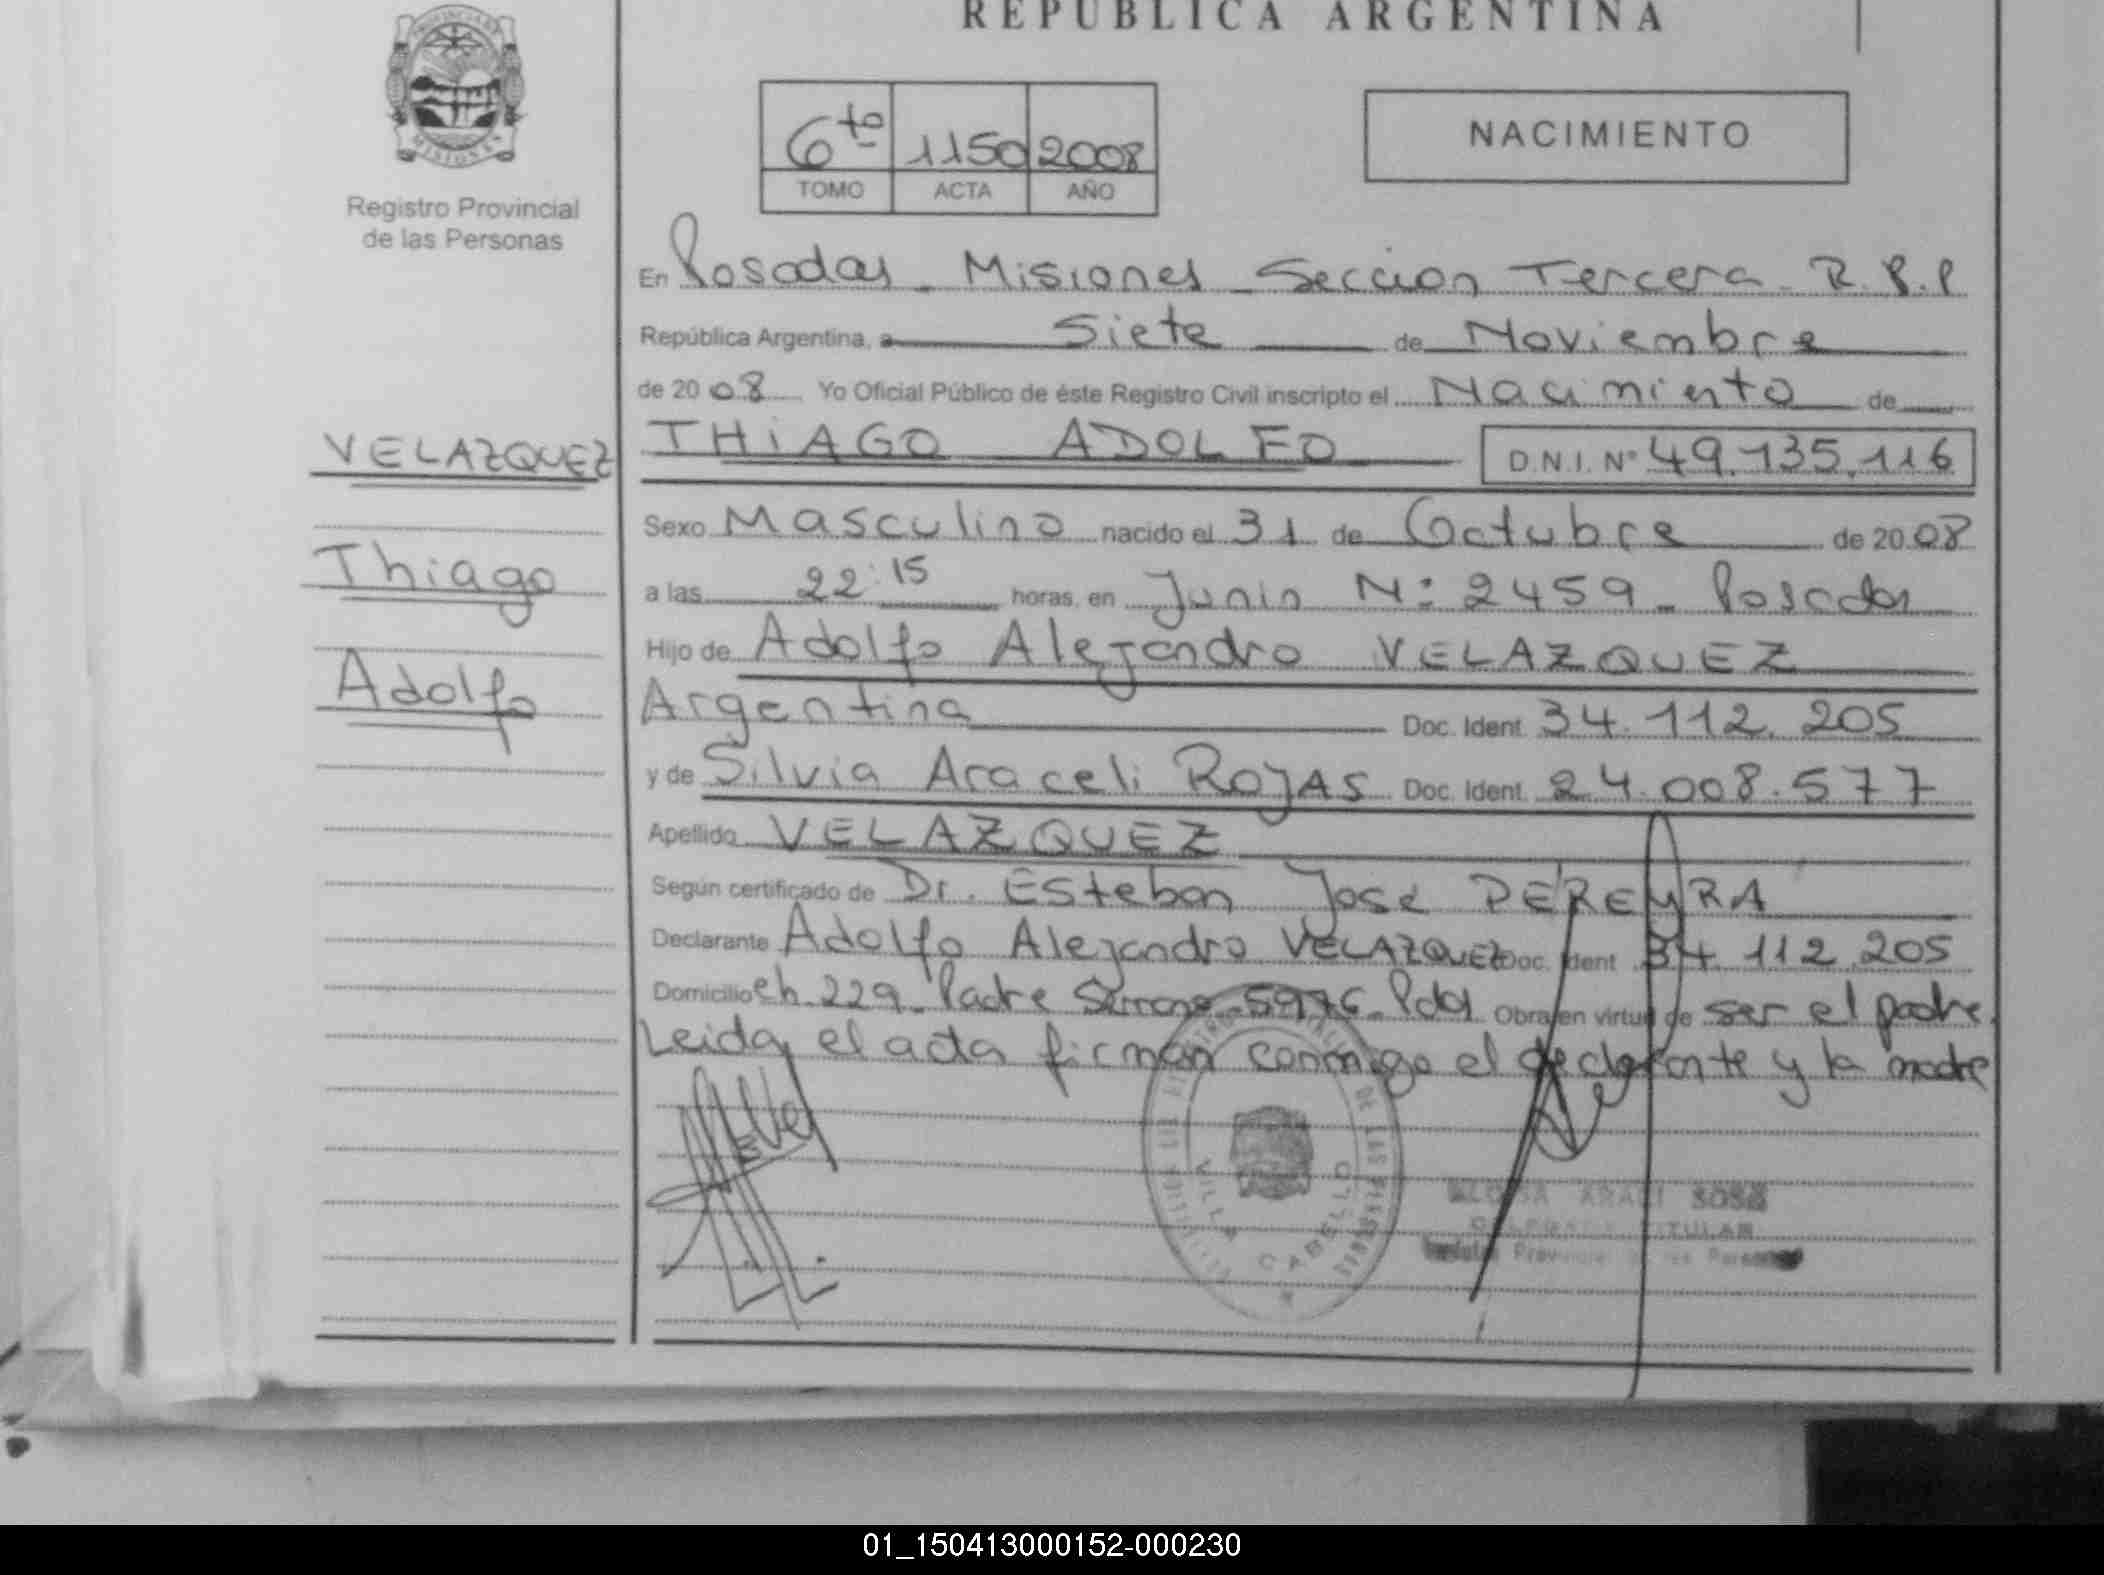 REPUBLICA ARGENTINA
PROVINCIA DE
MISIONES
Registro Provincial
de las Personas
6to 1150 2008
TOMO ACTA AÑO
NACIMIENTO
En Posadas - Misiones - Sección Tercera - R.P.P
República Argentina, a Siete de Noviembre
de 2008 Yo Oficial Público de éste Registro Civil inscripto el Nacimiento de
VELAZQUEZ
Thiago
Adolfo
THIAGO ADOLFO D.N.I. Nº 49.135.116
Sexo Masculino nacido el 31 de Octubre de 2008
a las 22:15 horas, en Junin Nº: 2459 - Posadas
Hijo de Adolfo Alejandro VELAZQUEZ
Argentina Doc. Ident. 34.112.205
y de Silvia Araceli ROJAS Doc. Ident. 24.008.577
Apellido VELAZQUEZ
Según certificado de Dr. Esteban José PEREYRA
Declarante Adolfo Alejandro VELAZQUEZ Doc. Ident 34.112.205
Domicilio ch. 229 - Padre Serrano - 5976 - Pdas Obra en virtud de ser el padre.
Leida el acta firman conmigo el declarante y la madre
DE LAS PERSONAS
VILLA CABELLO
ARACI SOSA
TITULAR
01_150413000152-000230